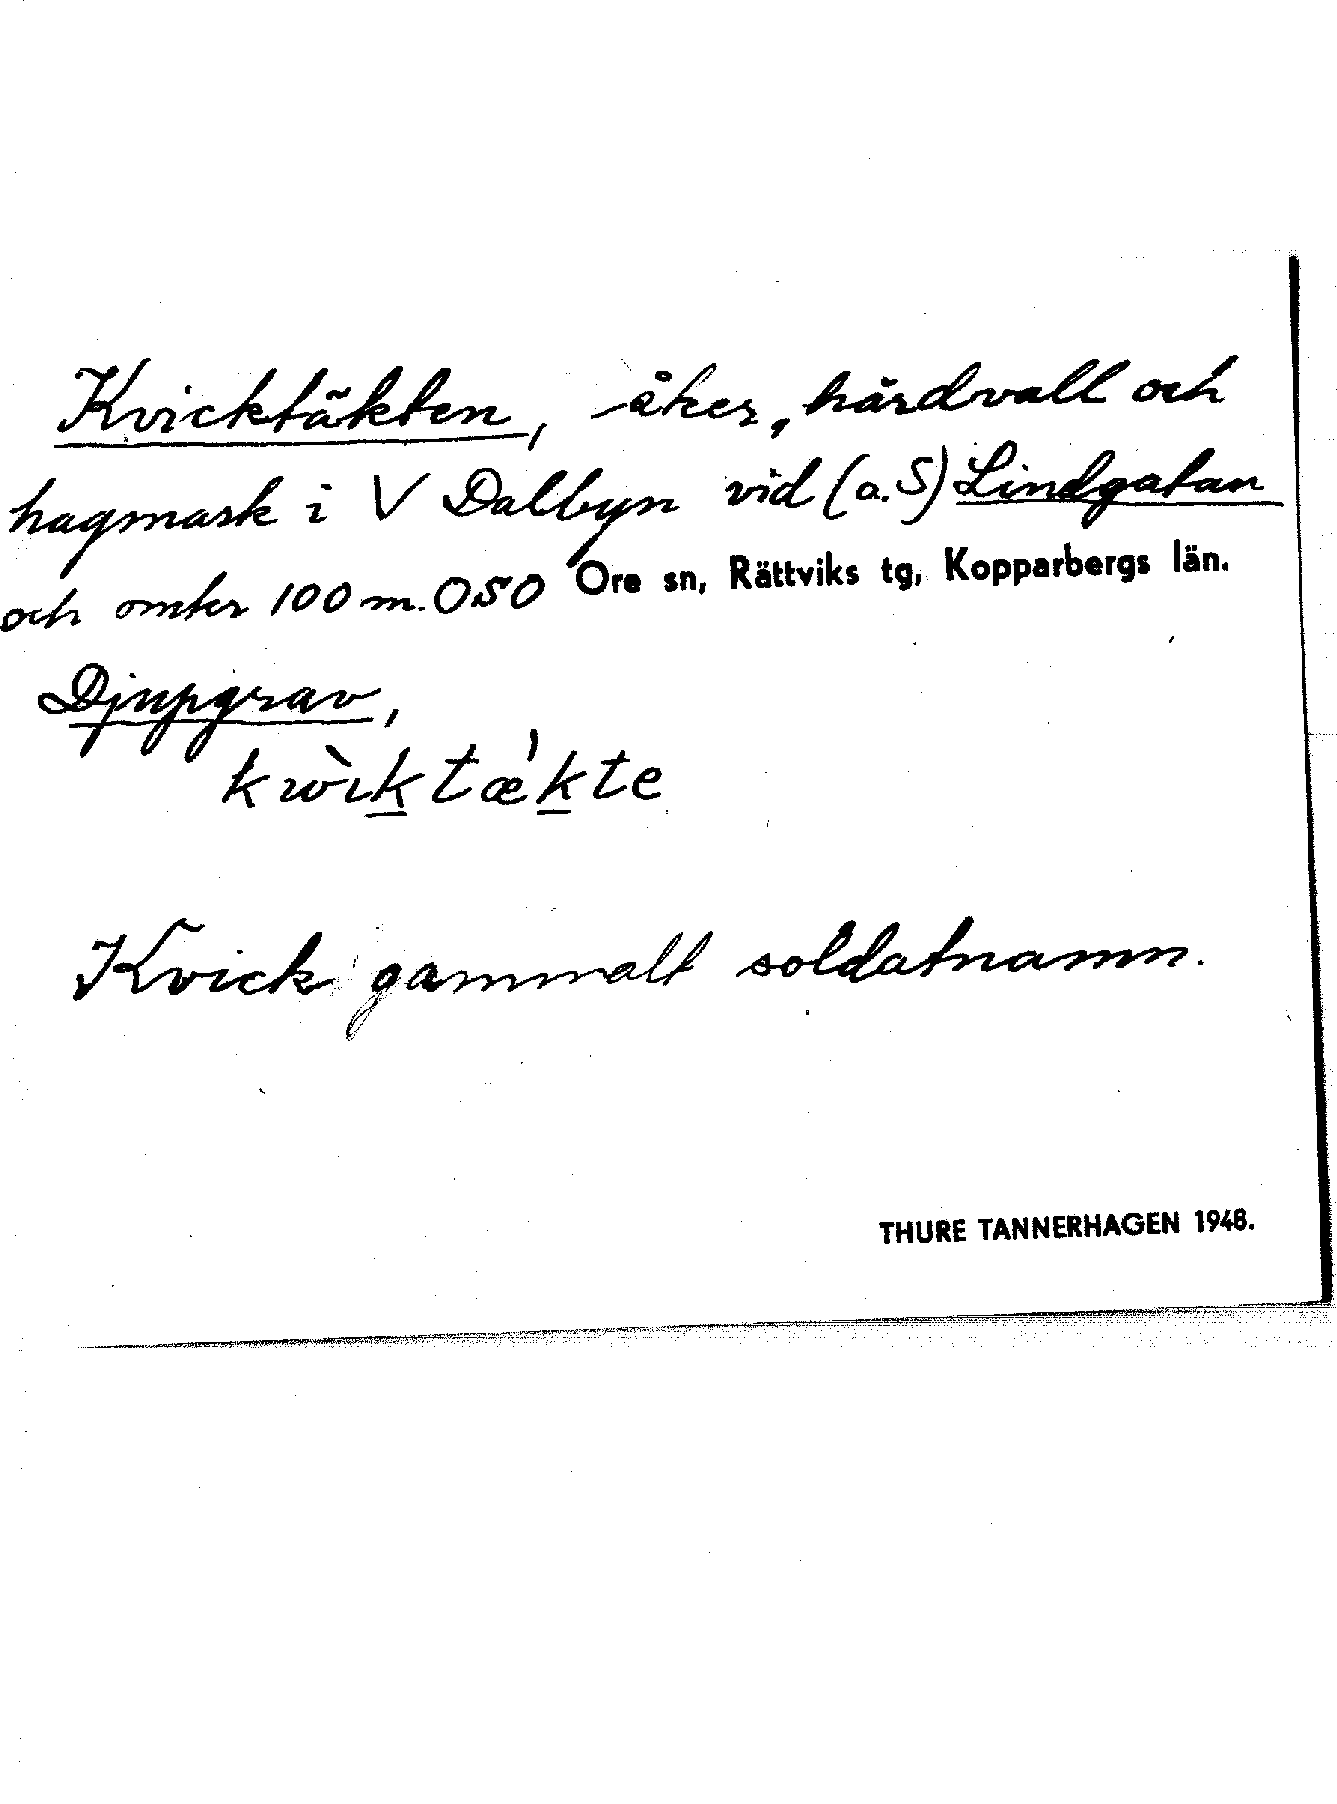 Kvicktäkten, åker, hårdvall och
hagmark i V Dalbyn vid (o. S) Lindgatan
och omkr 100 m. OSO Ore sn, Rättviks tg, Kopparbergs län.
Djupgrav,
kwìktæ̀kte
Kvick gammalt soldatnamn.
THURE TANNERHAGEN 1948.